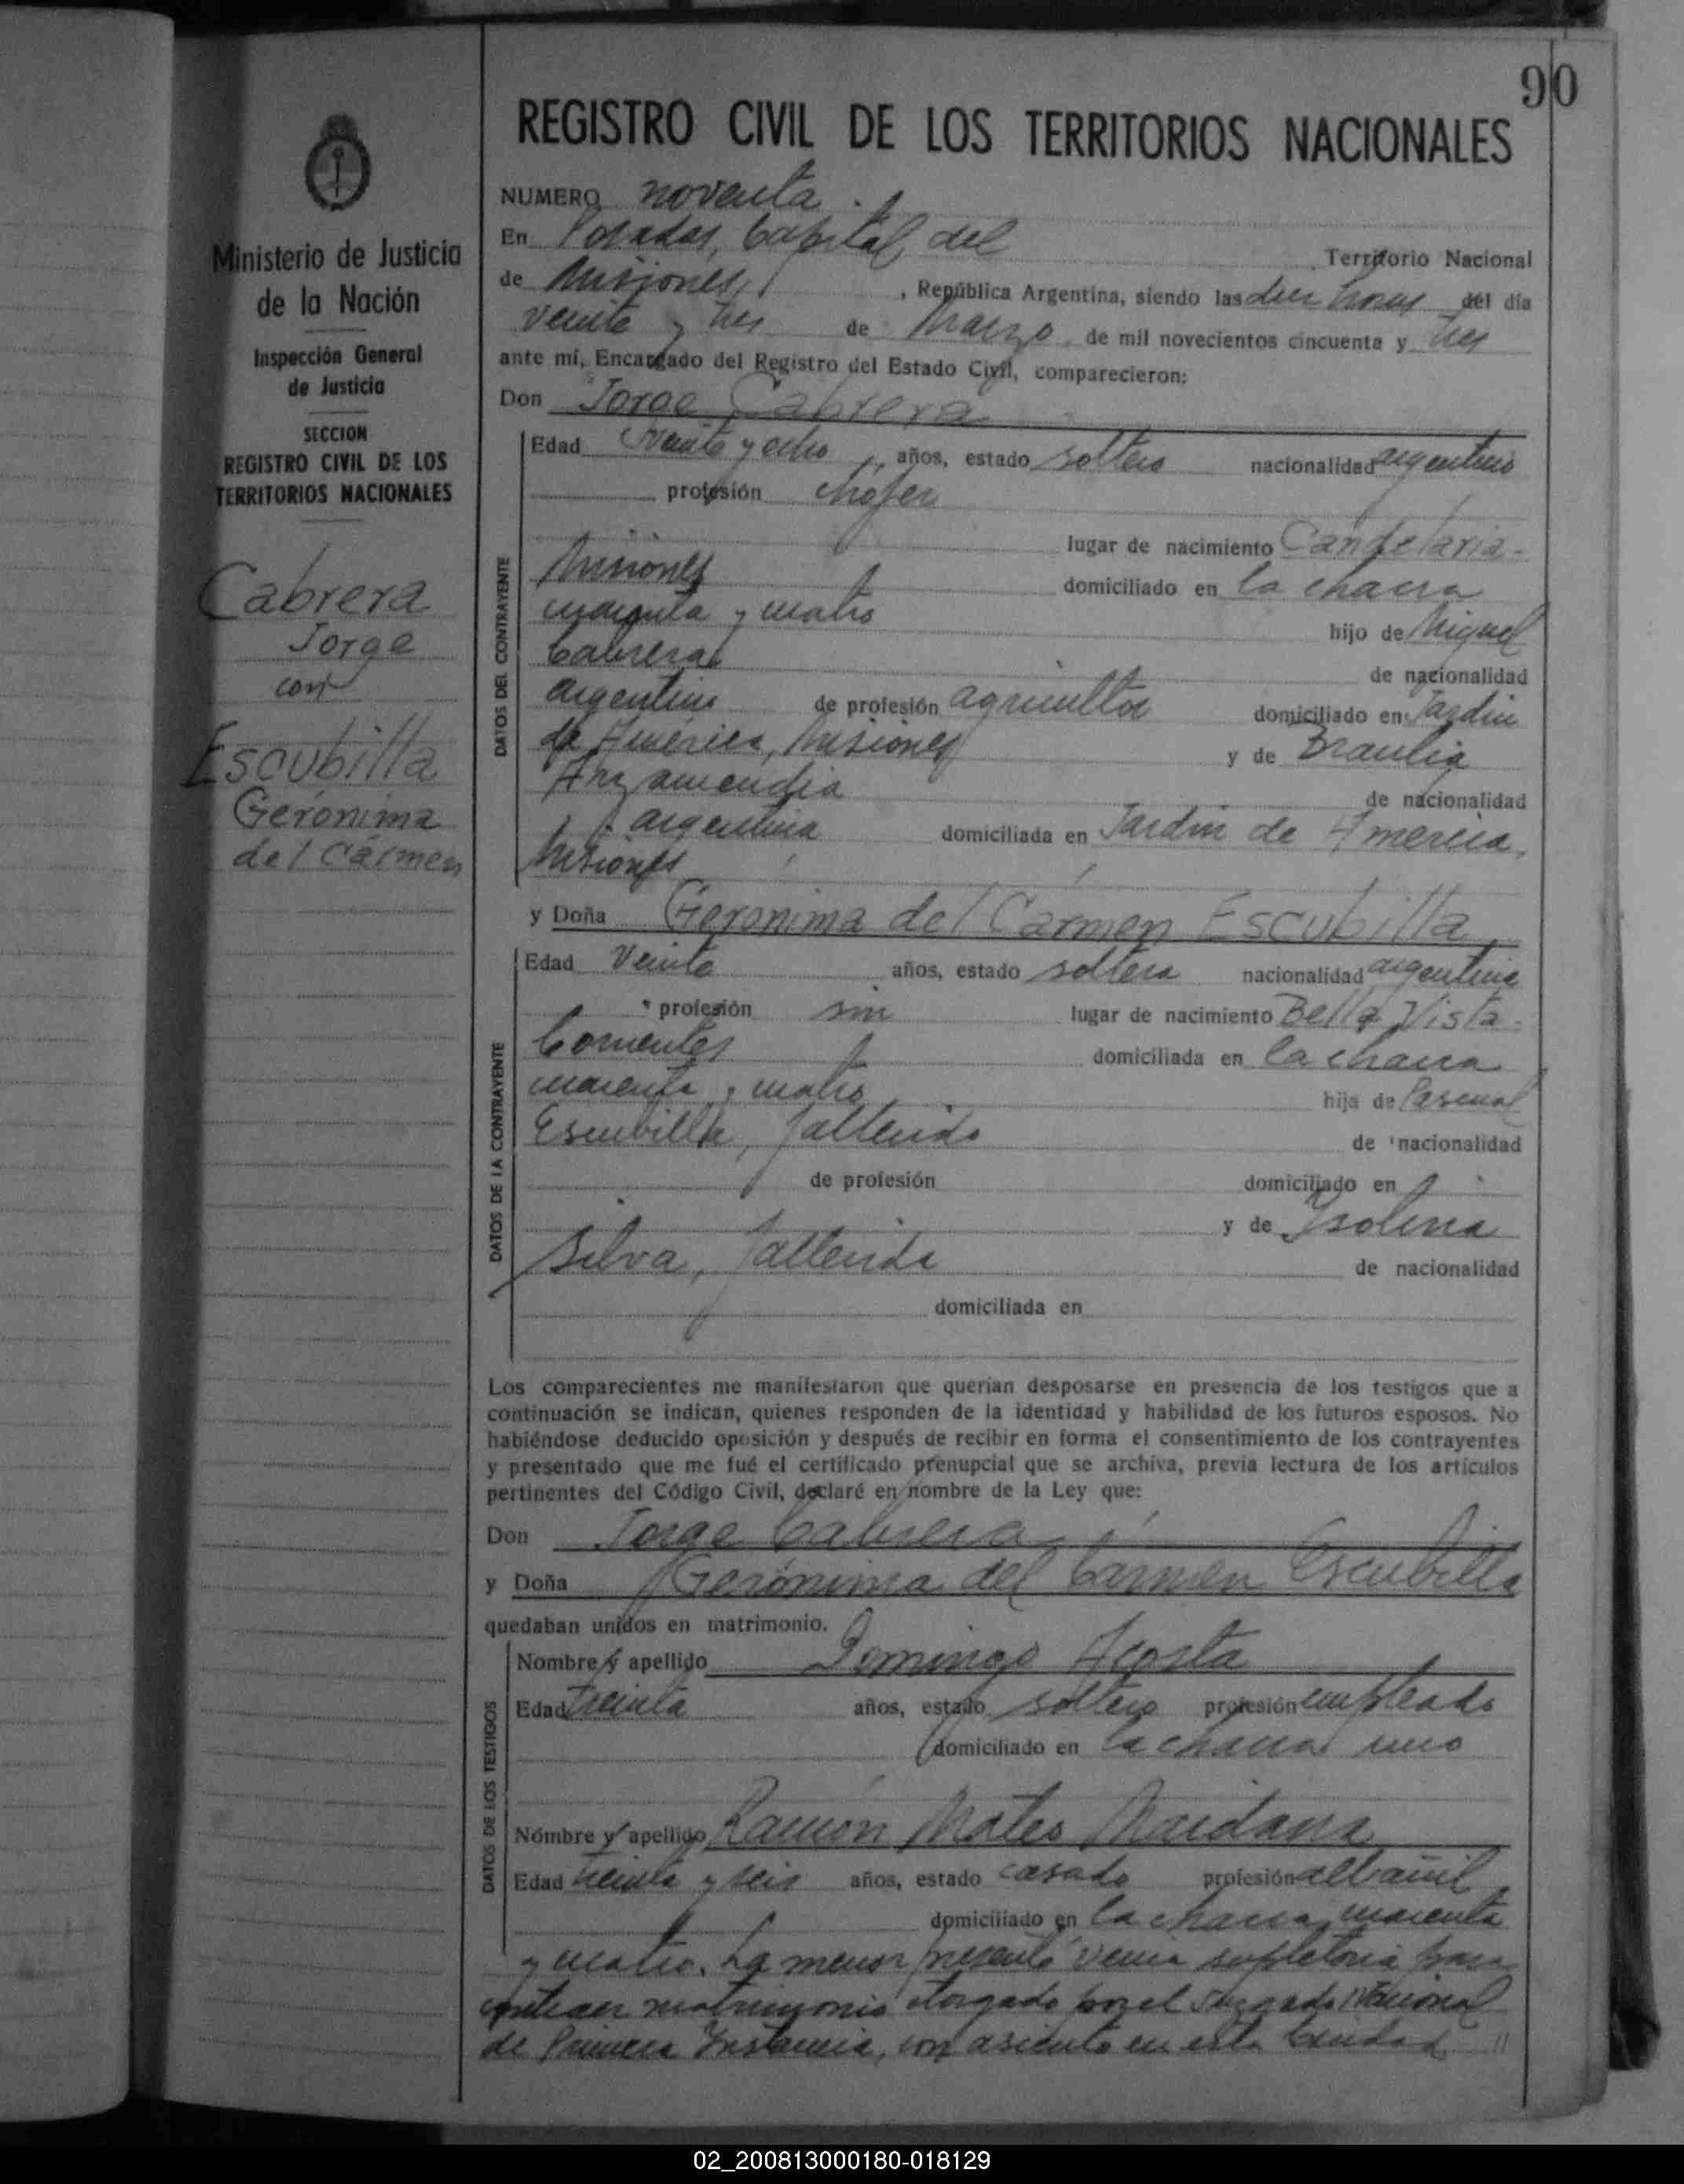 90
REGISTRO CIVIL DE LOS TERRITORIOS NACIONALES
Ministerio de Justicia
de la Nación
Inspección General
de Justicia
SECCION
REGISTRO CIVIL DE LOS
TERRITORIOS NACIONALES
Cabrera
Jorge
con
Escubilla
Gerónima
del Cármen
NUMERO noventa.
En Posadas, Capital del Territorio Nacional
de Misiones, República Argentina, siendo las diez horas del día
veinte y tres de Marzo de mil novecientos cincuenta y tres
ante mí, Encargado del Registro del Estado Civil, comparecieron:
Don Jorge Cabrera
DATOS DEL CONTRAYENTE
Edad veinte y ocho años, estado soltero nacionalidad argentino
profesión chofer
lugar de nacimiento Candelaria-
Misiones domiciliado en la chacra
cuarenta y cuatro hijo de Miguel
Cabrera de nacionalidad
argentino de profesión agricultor domiciliado en Jardin
de América, Misiones y de Braulia
Anzamendia de nacionalidad
argentina domiciliada en Jardin de America,
Misiones
y Doña Geronima del Cármen Escubilla
DATOS DE LA CONTRAYENTE
Edad Veinte años, estado soltera nacionalidad argentina
profesión sin lugar de nacimiento Bella Vista-
Corrientes domiciliada en la chacra
cuarenta y cuatro hija de Pascual
Escubilla, fallecido de nacionalidad
de profesión domiciliado en
y de Ysolina
Silva, fallecida de nacionalidad
domiciliada en
Los comparecientes me manifestaron que querían desposarse en presencia de los testigos que a
continuación se indican, quienes responden de la identidad y habilidad de los futuros esposos. No
habiéndose deducido oposición y después de recibir en forma el consentimiento de los contrayentes
y presentado que me fué el certificado prenupcial que se archiva, previa lectura de los artículos
pertinentes del Código Civil, declaré en nombre de la Ley que:
Don Jorge Cabrera
y Doña Gerónima del Carmen Escubilla
quedaban unidos en matrimonio.
DATOS DE LOS TESTIGOS
Nombre y apellido Domingo Acosta
Edad treinta años, estado soltero profesión empleado
domiciliado en la chacra uno
Nombre y apellido Ramón Mateo Maidana
Edad treinta y seis años, estado casado profesión albañil
domiciliado en la chacra cuarenta
y cuatro. La menor presentó venia supletoria para
contraer matrimonio otorgado por el Juzgado Nacional
de Primera Instancia, con asiento en esta Ciudad //
02_200813000180-018129